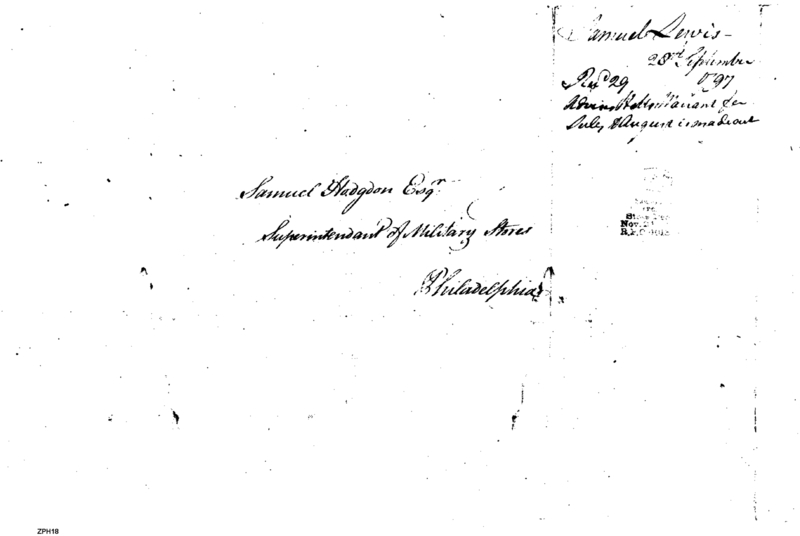 Samuel Lewis-
28th September
Recd 29 97
Warrant for
July & August is made out
Samuel Hodgdon Esqr.
Superintendant of Military Stores
Philadelphia
Nov.
ZPH18